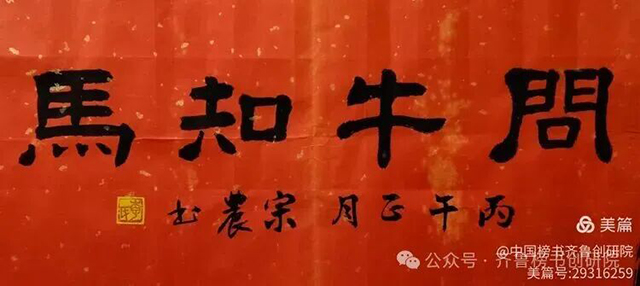 問牛知馬
丙午正月宗農书
美篇
@中国榜书齐鲁创研院
公众号·齐鲁榜书创研院
美篇号:29316259